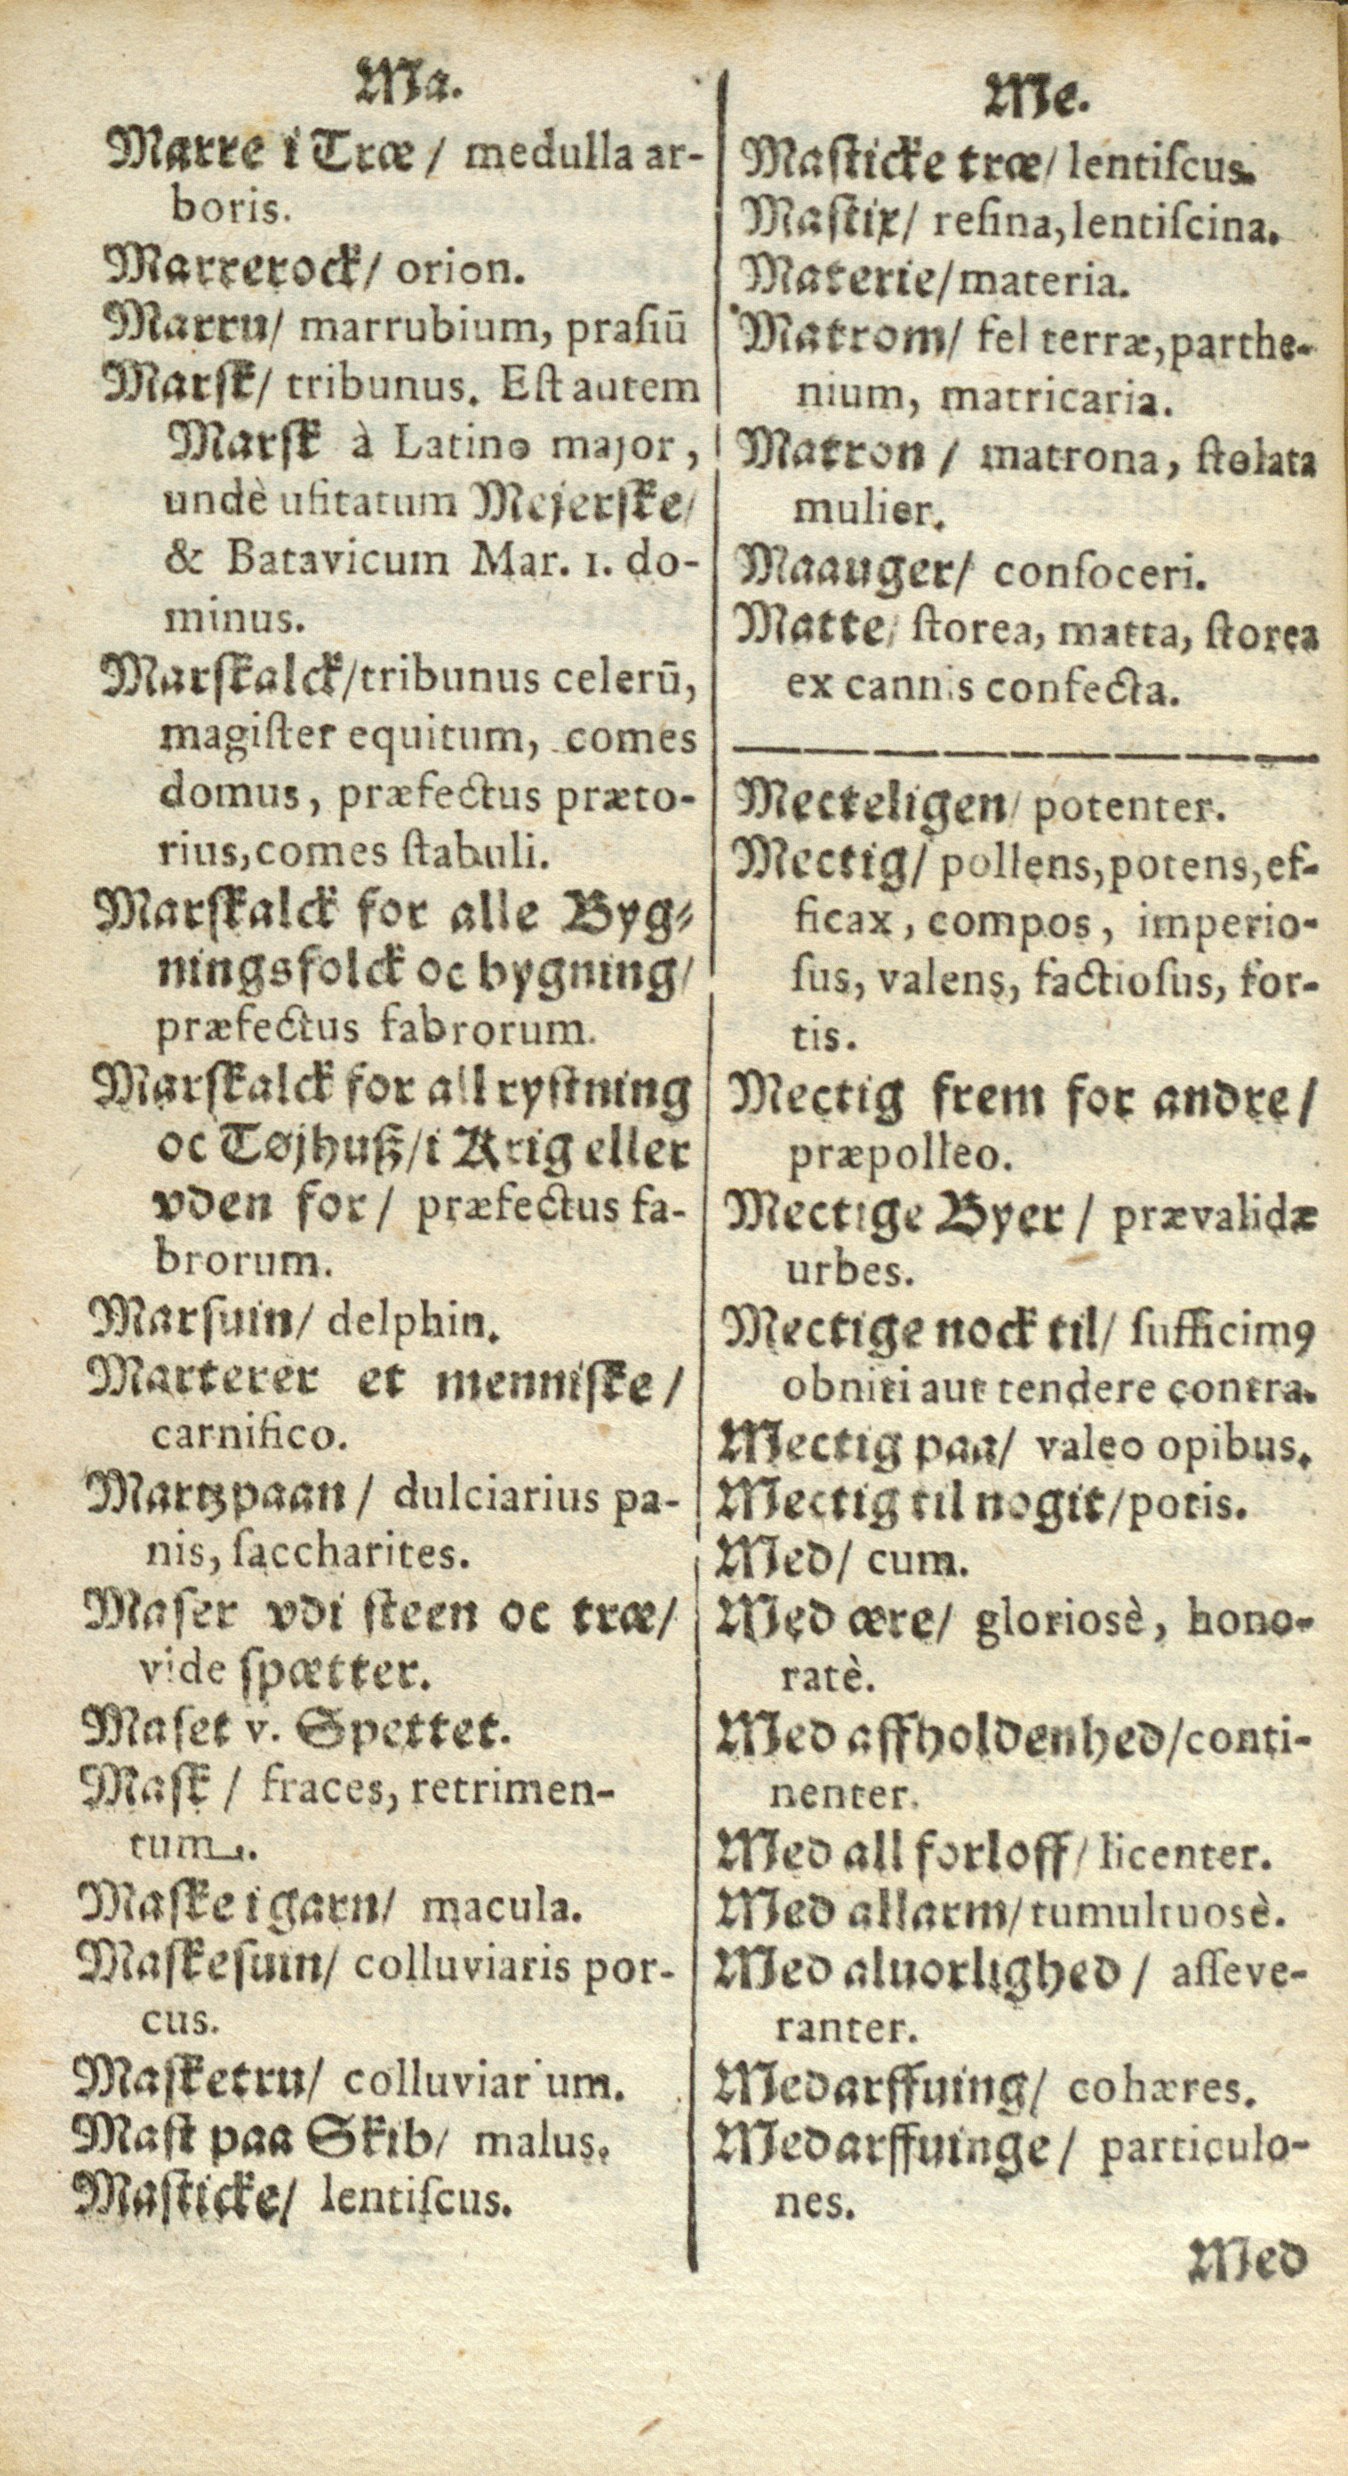 Ma.
Marre i Træ / medulla ar-
boris.
Marrerock/ orion.
Marru/ marrubium, praſiū
Marſk/ tribunus. Eſt autem
Marſk à Latino major,
undè uſitatum Mejerſke/
& Batavicum Mar. 1. do-
minus.
Marſkalck/tribunus celerū,
magiſter equitum, comes
domus, præfectus præto-
rius, comes ſtabuli.
Marſkalck for alle Byg-
ningsfolck oc bygning/
præfectus fabrorum.
Marſkalck for all ryſtning
oc Tøjhuß/i Krig eller
vden for/ præfectus fa-
brorum.
Marſuin/ delphin.
Marterer et menniſke/
carnifico.
Martzpaan/ dulciarius pa-
nis, ſaccharites.
Maſer vdi ſteen oc træ/
vide ſpætter.
Maſet v. Spettet.
Maſk / fraces, retrimen-
tum.
Maſke i garn/ macula.
Maſkeſuin/ colluviaris por-
cus.
Maſketru/ colluviarium.
Maſt paa Skib/ malus.
Maſticke/ lentiſcus.
Me.
Maſticke træ/ lentiſcus.
Maſtix/ reſina, lentiſcina.
Materie/materia.
Matrom/ fel terræ, parthe-
nium, matricaria.
Matron / matrona, ſtolata
mulier.
Maauger/ conſoceri.
Matte/ ſtorea, matta, ſtorea
ex cannis confecta.
Mecteligen/ potenter.
Mectig/ pollens, potens, ef-
ficax, compos, imperio-
ſus, valens, factioſus, for-
tis.
Mectig frem for andre/
præpolleo.
Mectige Byer / prævalidæ
urbes.
Mectige nock til/ ſufficimꝰ
obniti aut tendere contra.
Mectig paa/ valeo opibus.
Mectig til nogit/potis.
Med/ cum.
Med ære/ glorioſè, hono-
ratè.
Med affholdenhed/conti-
nenter.
Med all forloff/ licenter.
Med allarm/tumultuosè.
Med aluorlighed / aſſeve-
ranter.
Medarffuing/ cohæres.
Medarffuinge/ particulo-
nes.
Med